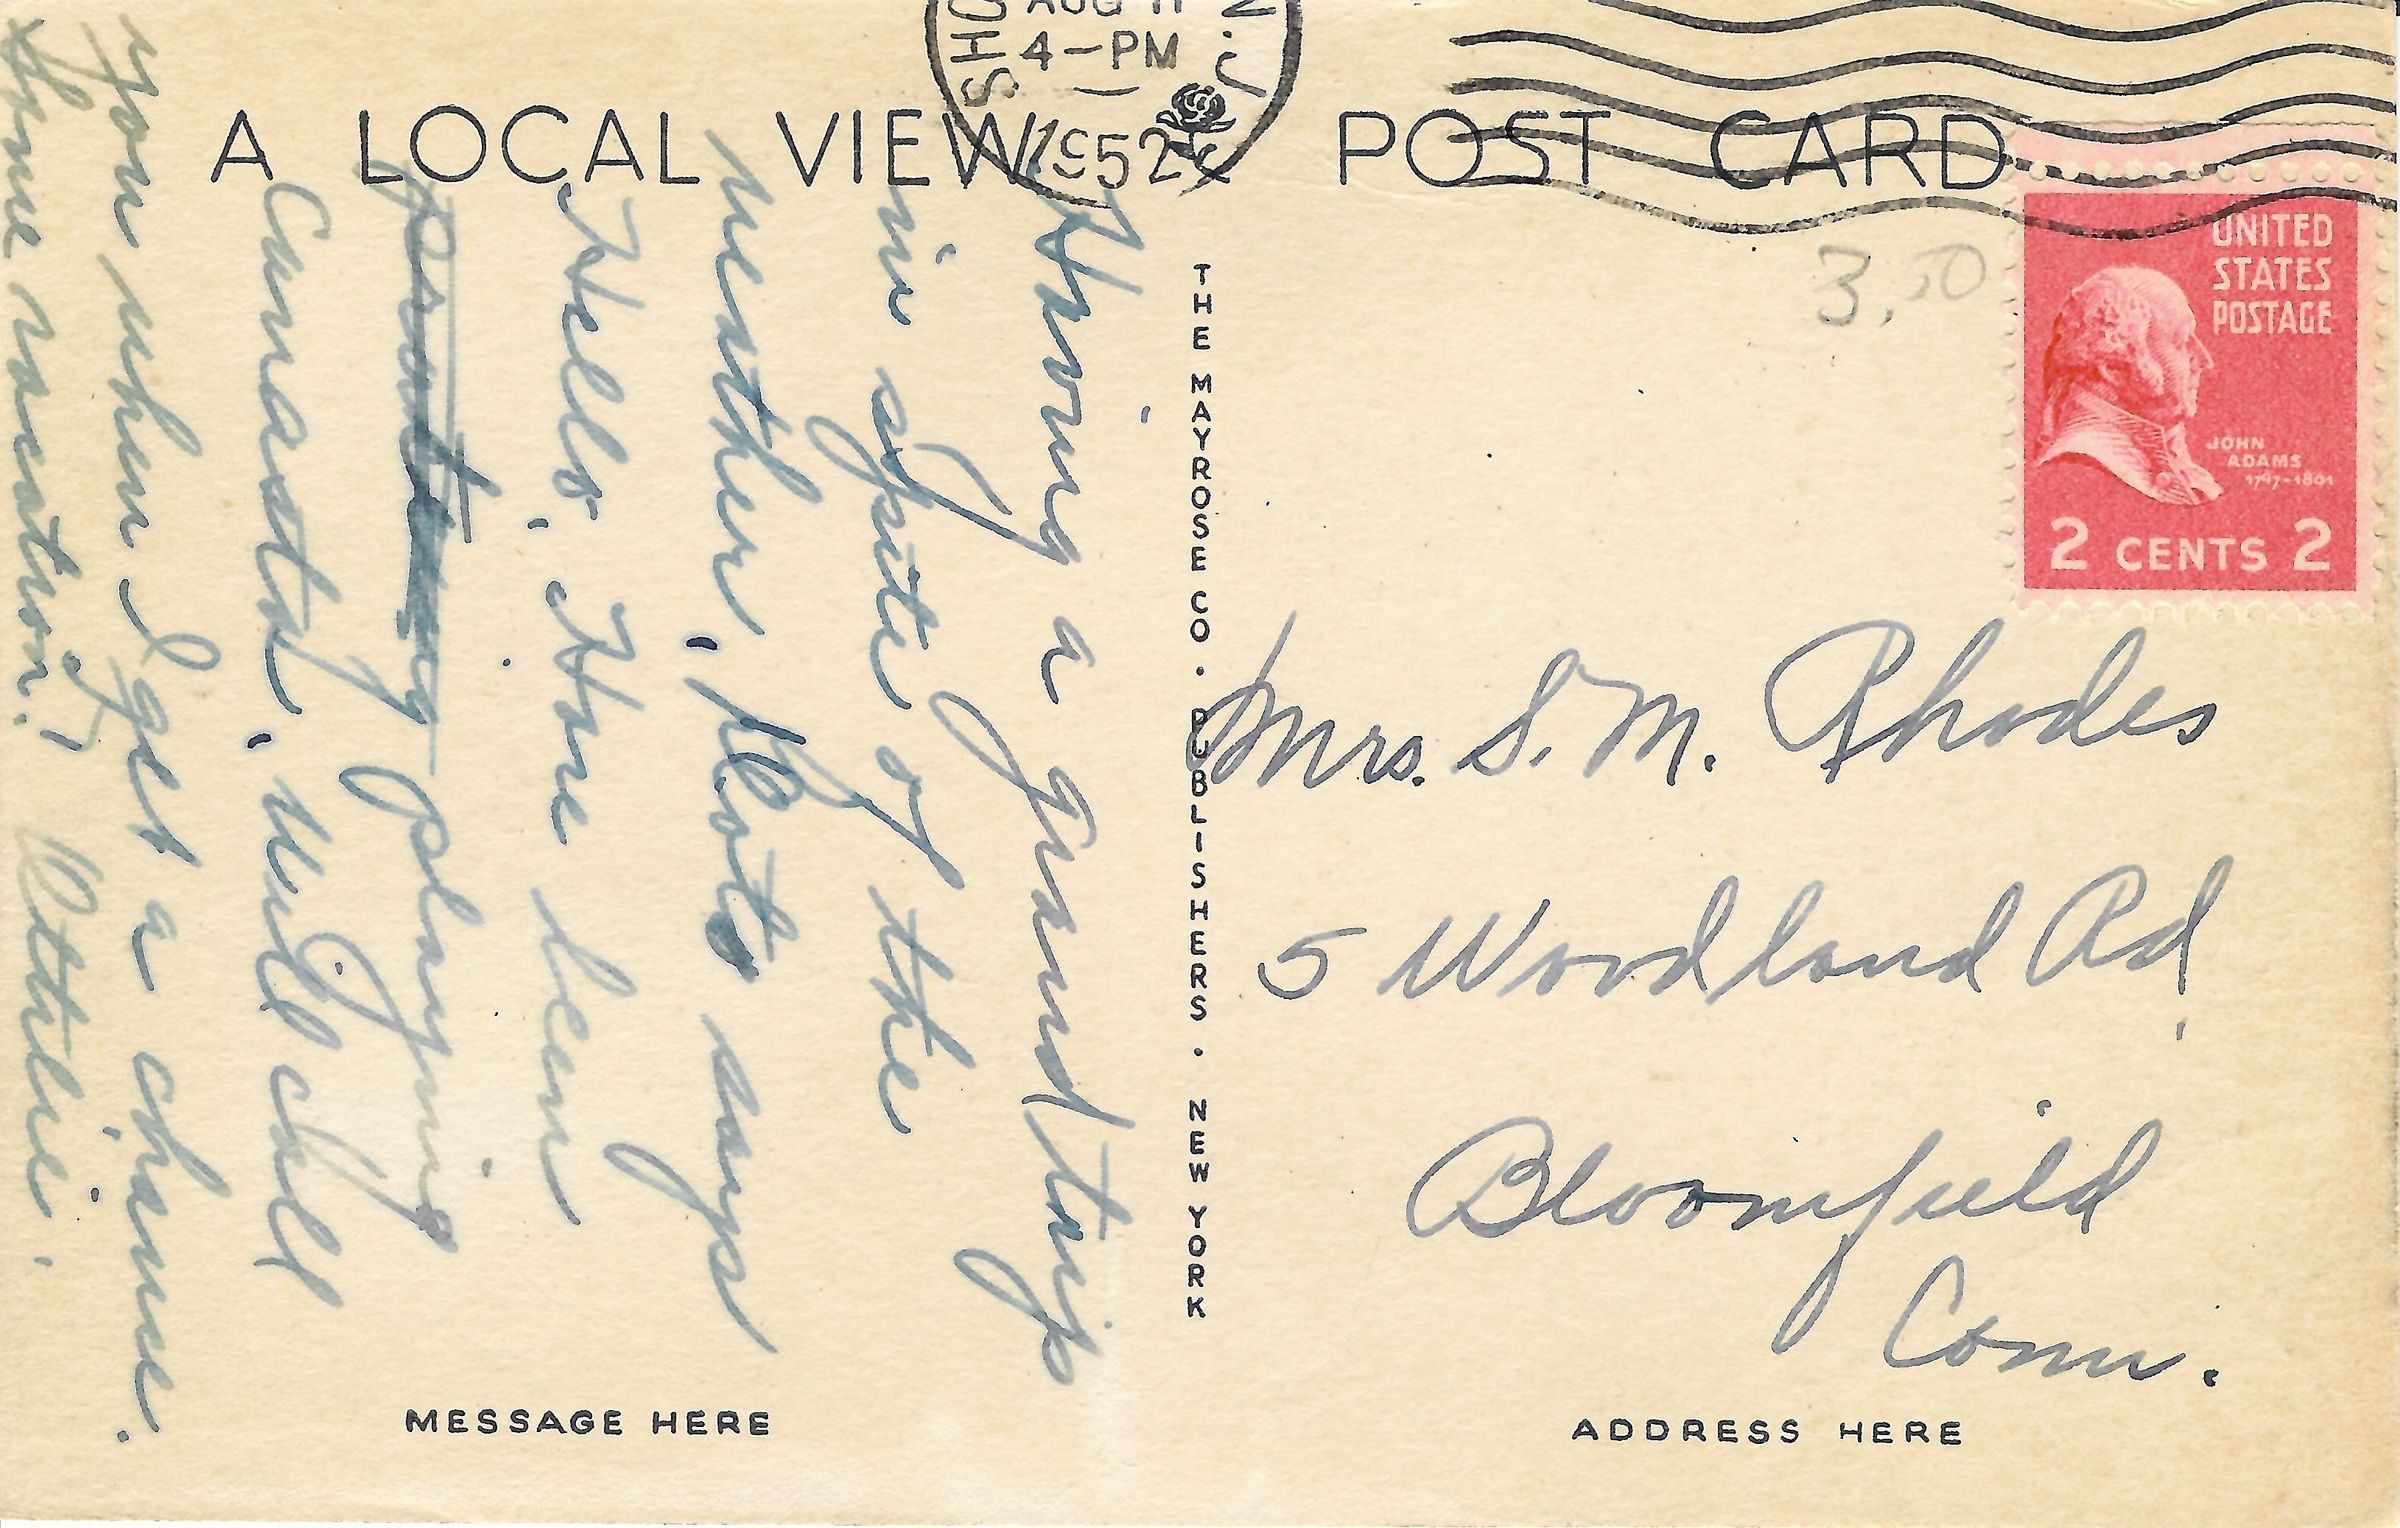 SHO
AUG 11
4-PM
1952
N.J.
A LOCAL VIEW POST CARD
UNITED
STATES
POSTAGE
JOHN
ADAMS
1797-1801
2 CENTS 2
3.50
Having a grand trip
in spite of the
weather. Plato says
Hello. Have been
playing
Canasta. Will call
you when I get a chance.
Some vacation! Ottilie.
THE MAYROSE CO. PUBLISHERS. NEW YORK
Mrs. S. M. Rhodes
5 Woodland Rd.
Bloomfield
Conn.
MESSAGE HERE
ADDRESS HERE